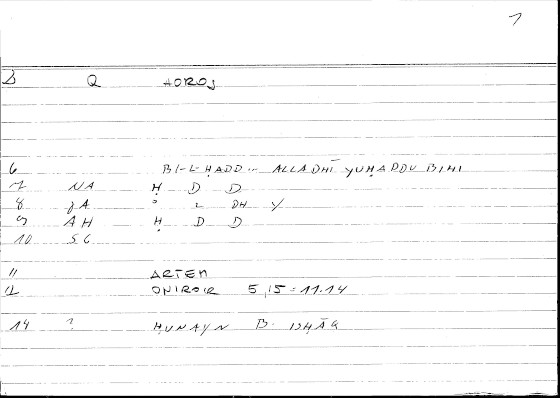 7
D Q HOROS
6 BI-L-ḤADD... ALLADHĪ YUḤADDU BIHI
7 NA Ḥ D D
8 L DH Y
9 AH Ḥ D D
10 SC
11 ARTEM
12 ONIROCR 5,15 = 11.14
14 ? ḤUNAYN B. ISḤĀQ